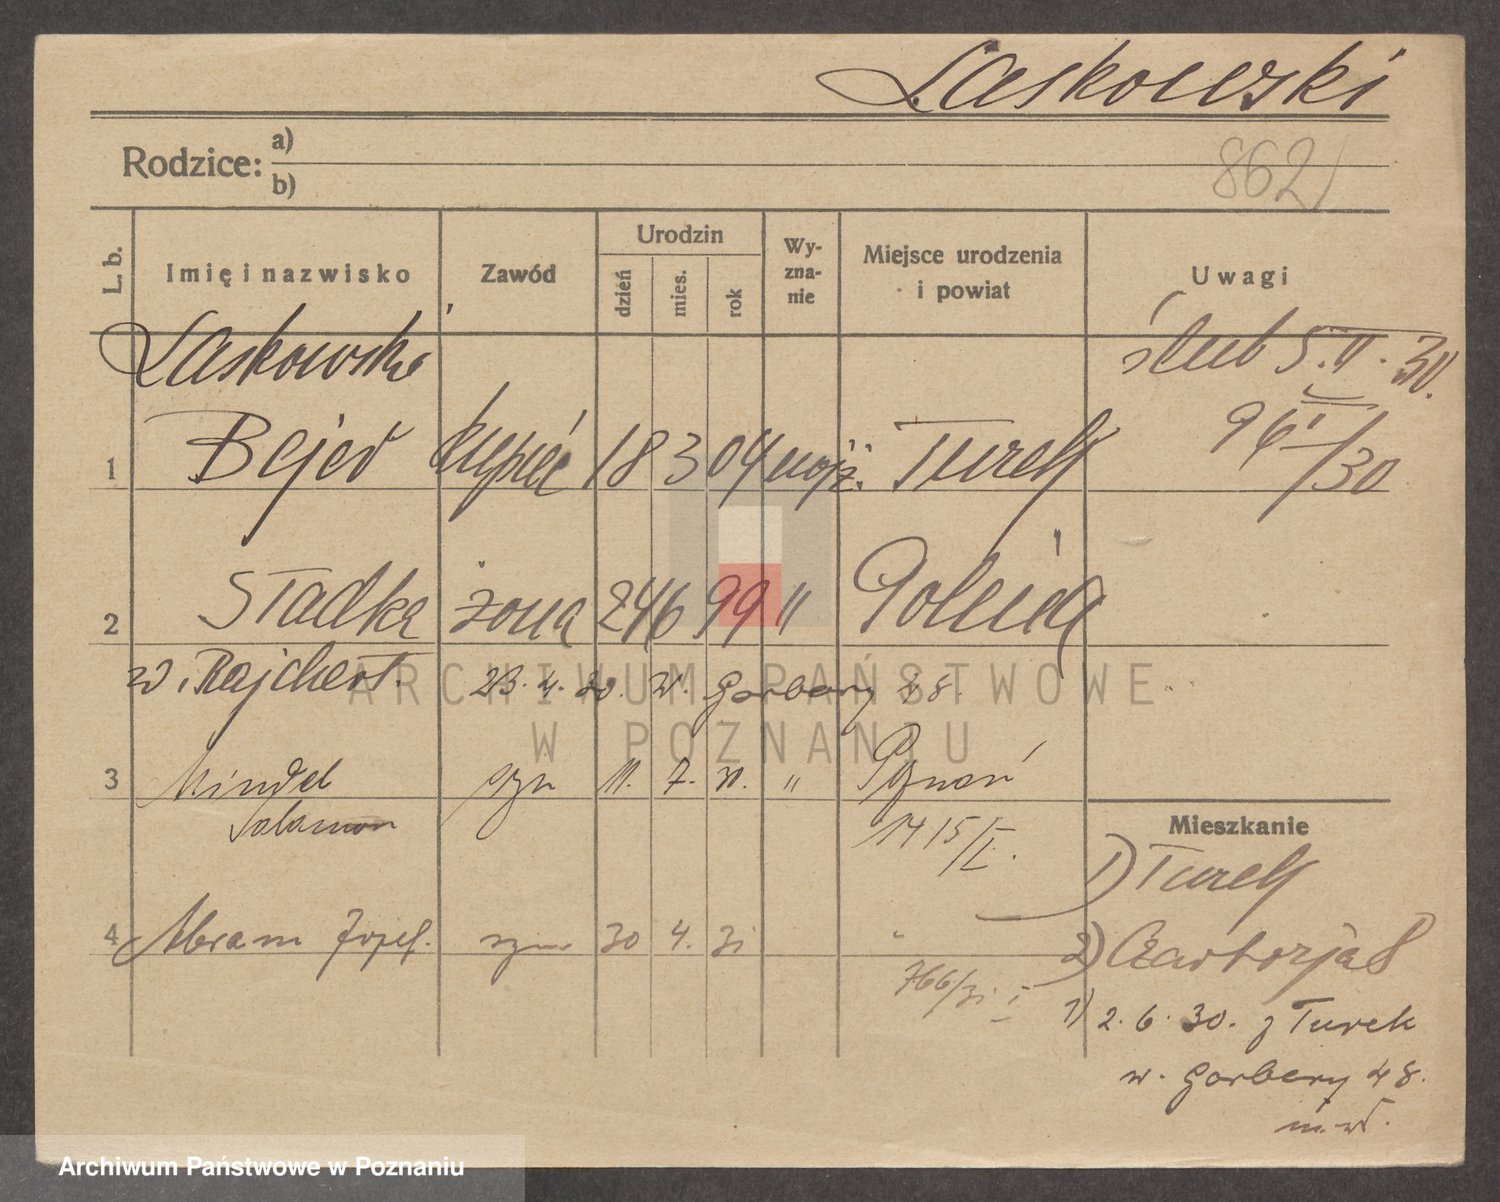 Laskowski
Rodzice: a)
b)
862
L. b. Imię i nazwisko Zawód Urodzin dzień mies. rok Wy-zna-nie Miejsce urodzenia i powiat Uwagi
Laskowski ślub 5.II.30.
96/30
1 Bejer kupiec 18 3 04 mojż. Turek
2 Stadka żona 24 6 99 "
w. Rajchert 23.4.30. w. Garbary 48.
ARCHIWUM PAŃSTWOWE
W POZNANIU
3 Mindel syn 11. 7. 30. " Poznań
Salamon 1415/I.
Mieszkanie
1) Turek
4 Abram Józef. syn 30 4. 31 "
2) Czartorja 8
766/31 I
1) 2.6.30. z Turek
w. Garbary 48.
m.w.
Archiwum Państwowe w Poznaniu